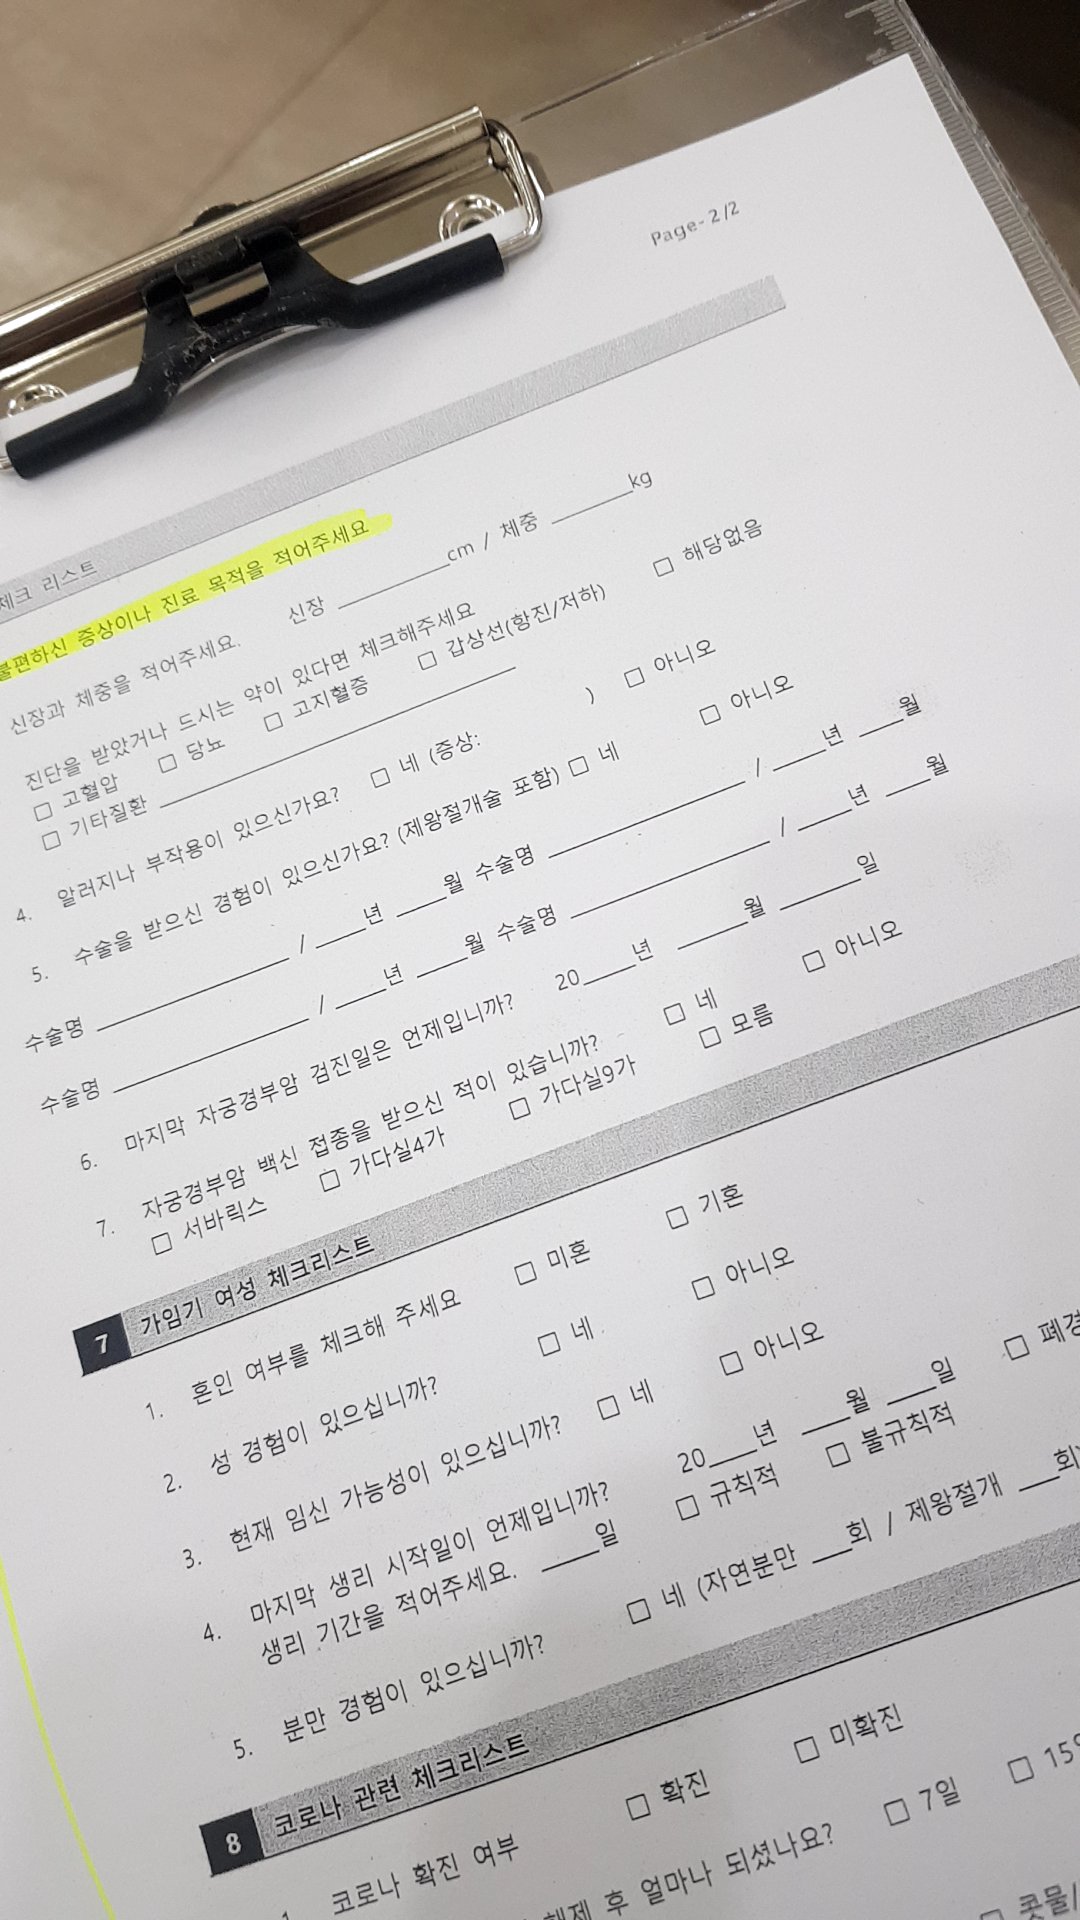 Page- 2/2
체크 리스트
불편하신 증상이나 진료 목적을 적어주세요
신장과 체중을 적어주세요. 신장 ________cm / 체중 ______kg
진단을 받았거나 드시는 약이 있다면 체크해주세요 □ 해당없음
□ 고혈압 □ 당뇨 □ 고지혈증 □ 갑상선(항진/저하)
□ 기타질환 ____________________
4. 알러지나 부작용이 있으신가요? □ 네 (증상: ) □ 아니오
5. 수술을 받으신 경험이 있으신가요? (제왕절개술 포함) □ 네 □ 아니오
수술명 ______________ / ____년 ____월 수술명 ______________ / ____년 ____월
수술명 ______________ / ____년 ____월 수술명 ______________ / ____년 ____월
6. 마지막 자궁경부암 검진일은 언제입니까? 20____년 ______월 ______일
7. 자궁경부암 백신 접종을 받으신 적이 있습니까? □ 네 □ 아니오
□ 서바릭스 □ 가다실4가 □ 가다실9가 □ 모름
7 가임기 여성 체크리스트
1. 혼인 여부를 체크해 주세요 □ 미혼 □ 기혼
2. 성 경험이 있으십니까? □ 네 □ 아니오
3. 현재 임신 가능성이 있으십니까? □ 네 □ 아니오
4. 마지막 생리 시작일이 언제입니까? 20____년 ____월 ____일 □ 폐경
생리 기간을 적어주세요. _____일 □ 규칙적 □ 불규칙적
5. 분만 경험이 있으십니까? □ 네 (자연분만 ___회 / 제왕절개 ___회)
8 코로나 관련 체크리스트
1. 코로나 확진 여부 □ 확진 □ 미확진
해제 후 얼마나 되셨나요? □ 7일 □ 15일
□ 콧물/